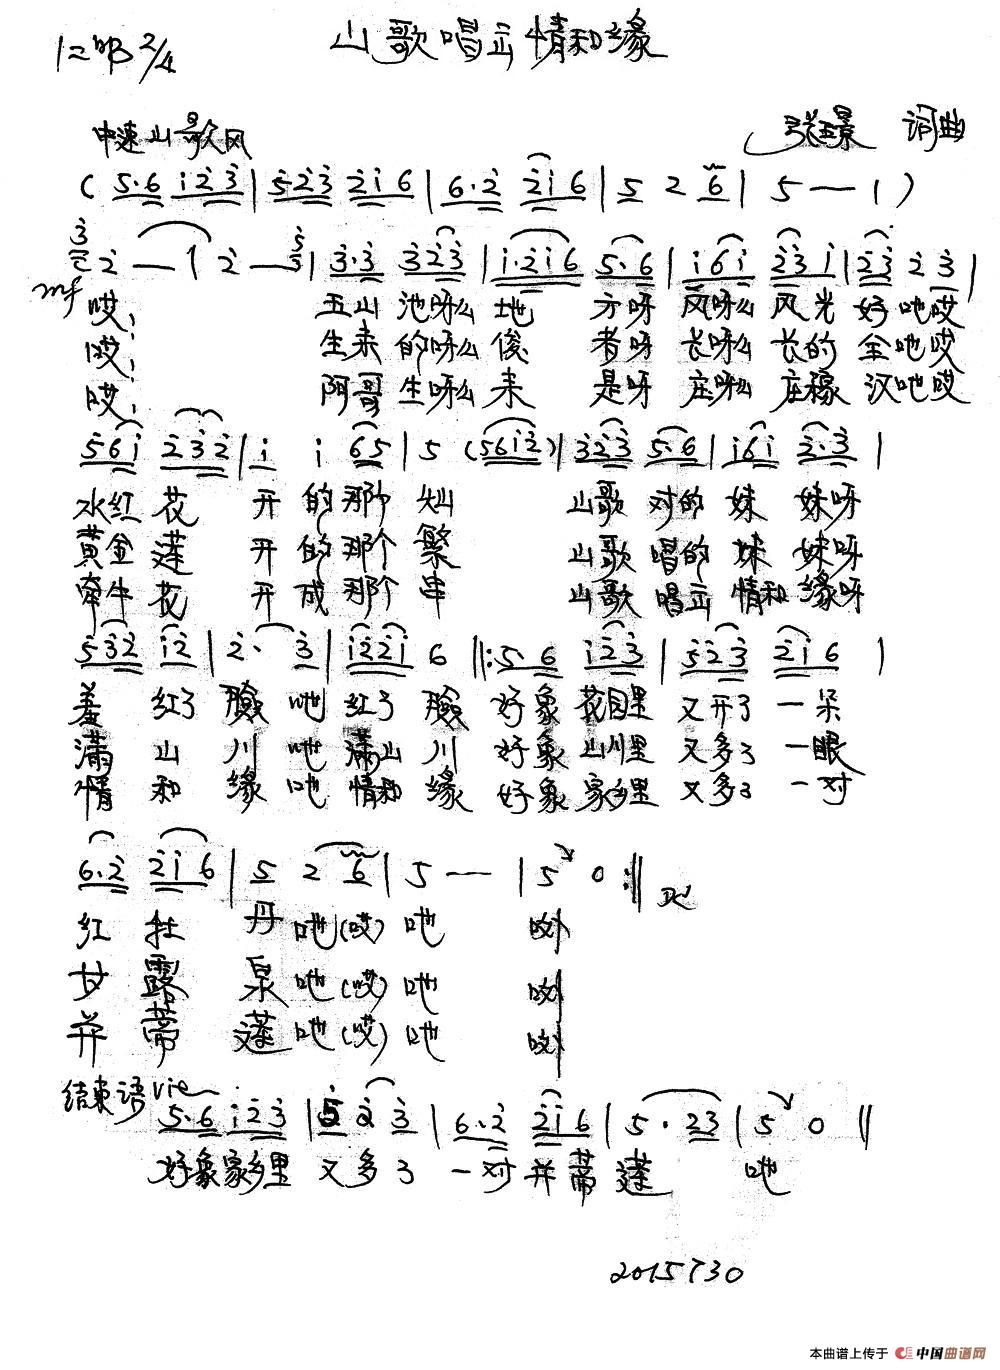 山歌唱出情和缘
1=♭B 2/4
中速山歌风
张玉景 词曲
( 5·6 i 2 3 | 5 2 3 2 i 6 | 6·2 2 i 6 | 5 2 6 | 5 — — | )
3 2 — | 2 — 5 3 | 3·3 3 2 3 | i·2 i 6 5·6 | i 6 i 2 3 i | 2 3 2 3 |
mf 哎, 五山 池呀么 地 方呀 风呀么 风光 好吔哎
哎, 生来 的呀么 俊 者呀 长呀么 长的 全吔哎
哎, 阿哥 生呀么 来 是呀 庄呀么 庄稼 汉吔哎
5 6 i 2 3 2 | i i 6 5 | 5 (5 6 i 2) | 3 2 3 5·6 | i 6 i 2·3 |
水红 花 开 的 那个 灿 山歌 对的 妹 妹呀
黄金 莲 开 的 那个 繁 山歌 唱的 妹 妹呀
牵牛 花 开 成 那个 串 山歌 唱出 情和 缘呀
5 3 2 i 2 | 2· 3 | i 2 2 i 6 ‖: 5·6 i 2 3 | 5 2 3 2 i 6 |
羞 红了 脸 吔 红了 脸 好象 花园里 又开了 一朵
满 山 川 吔 满山 川 好象 山川里 又多了 一眼
情 和 缘 吔 情和 缘 好象 家乡里 又多了 一对
6·2 2 i 6 | 5 2 6 | 5 — — | 5 0 :‖
红 牡 丹 吔(哎) 吔 哟
甘 露 泉 吔(哎) 吔 哟
并 蒂 莲 吔(哎) 吔 哟
结束语
5·6 i 2 3 | 5 2 3 | 6·2 2 i 6 | 5· 2 3 | 5 0 ‖
好象家乡里 又 多 了 一对 并蒂 莲 吔
20150730
本曲谱上传于 中国曲谱网